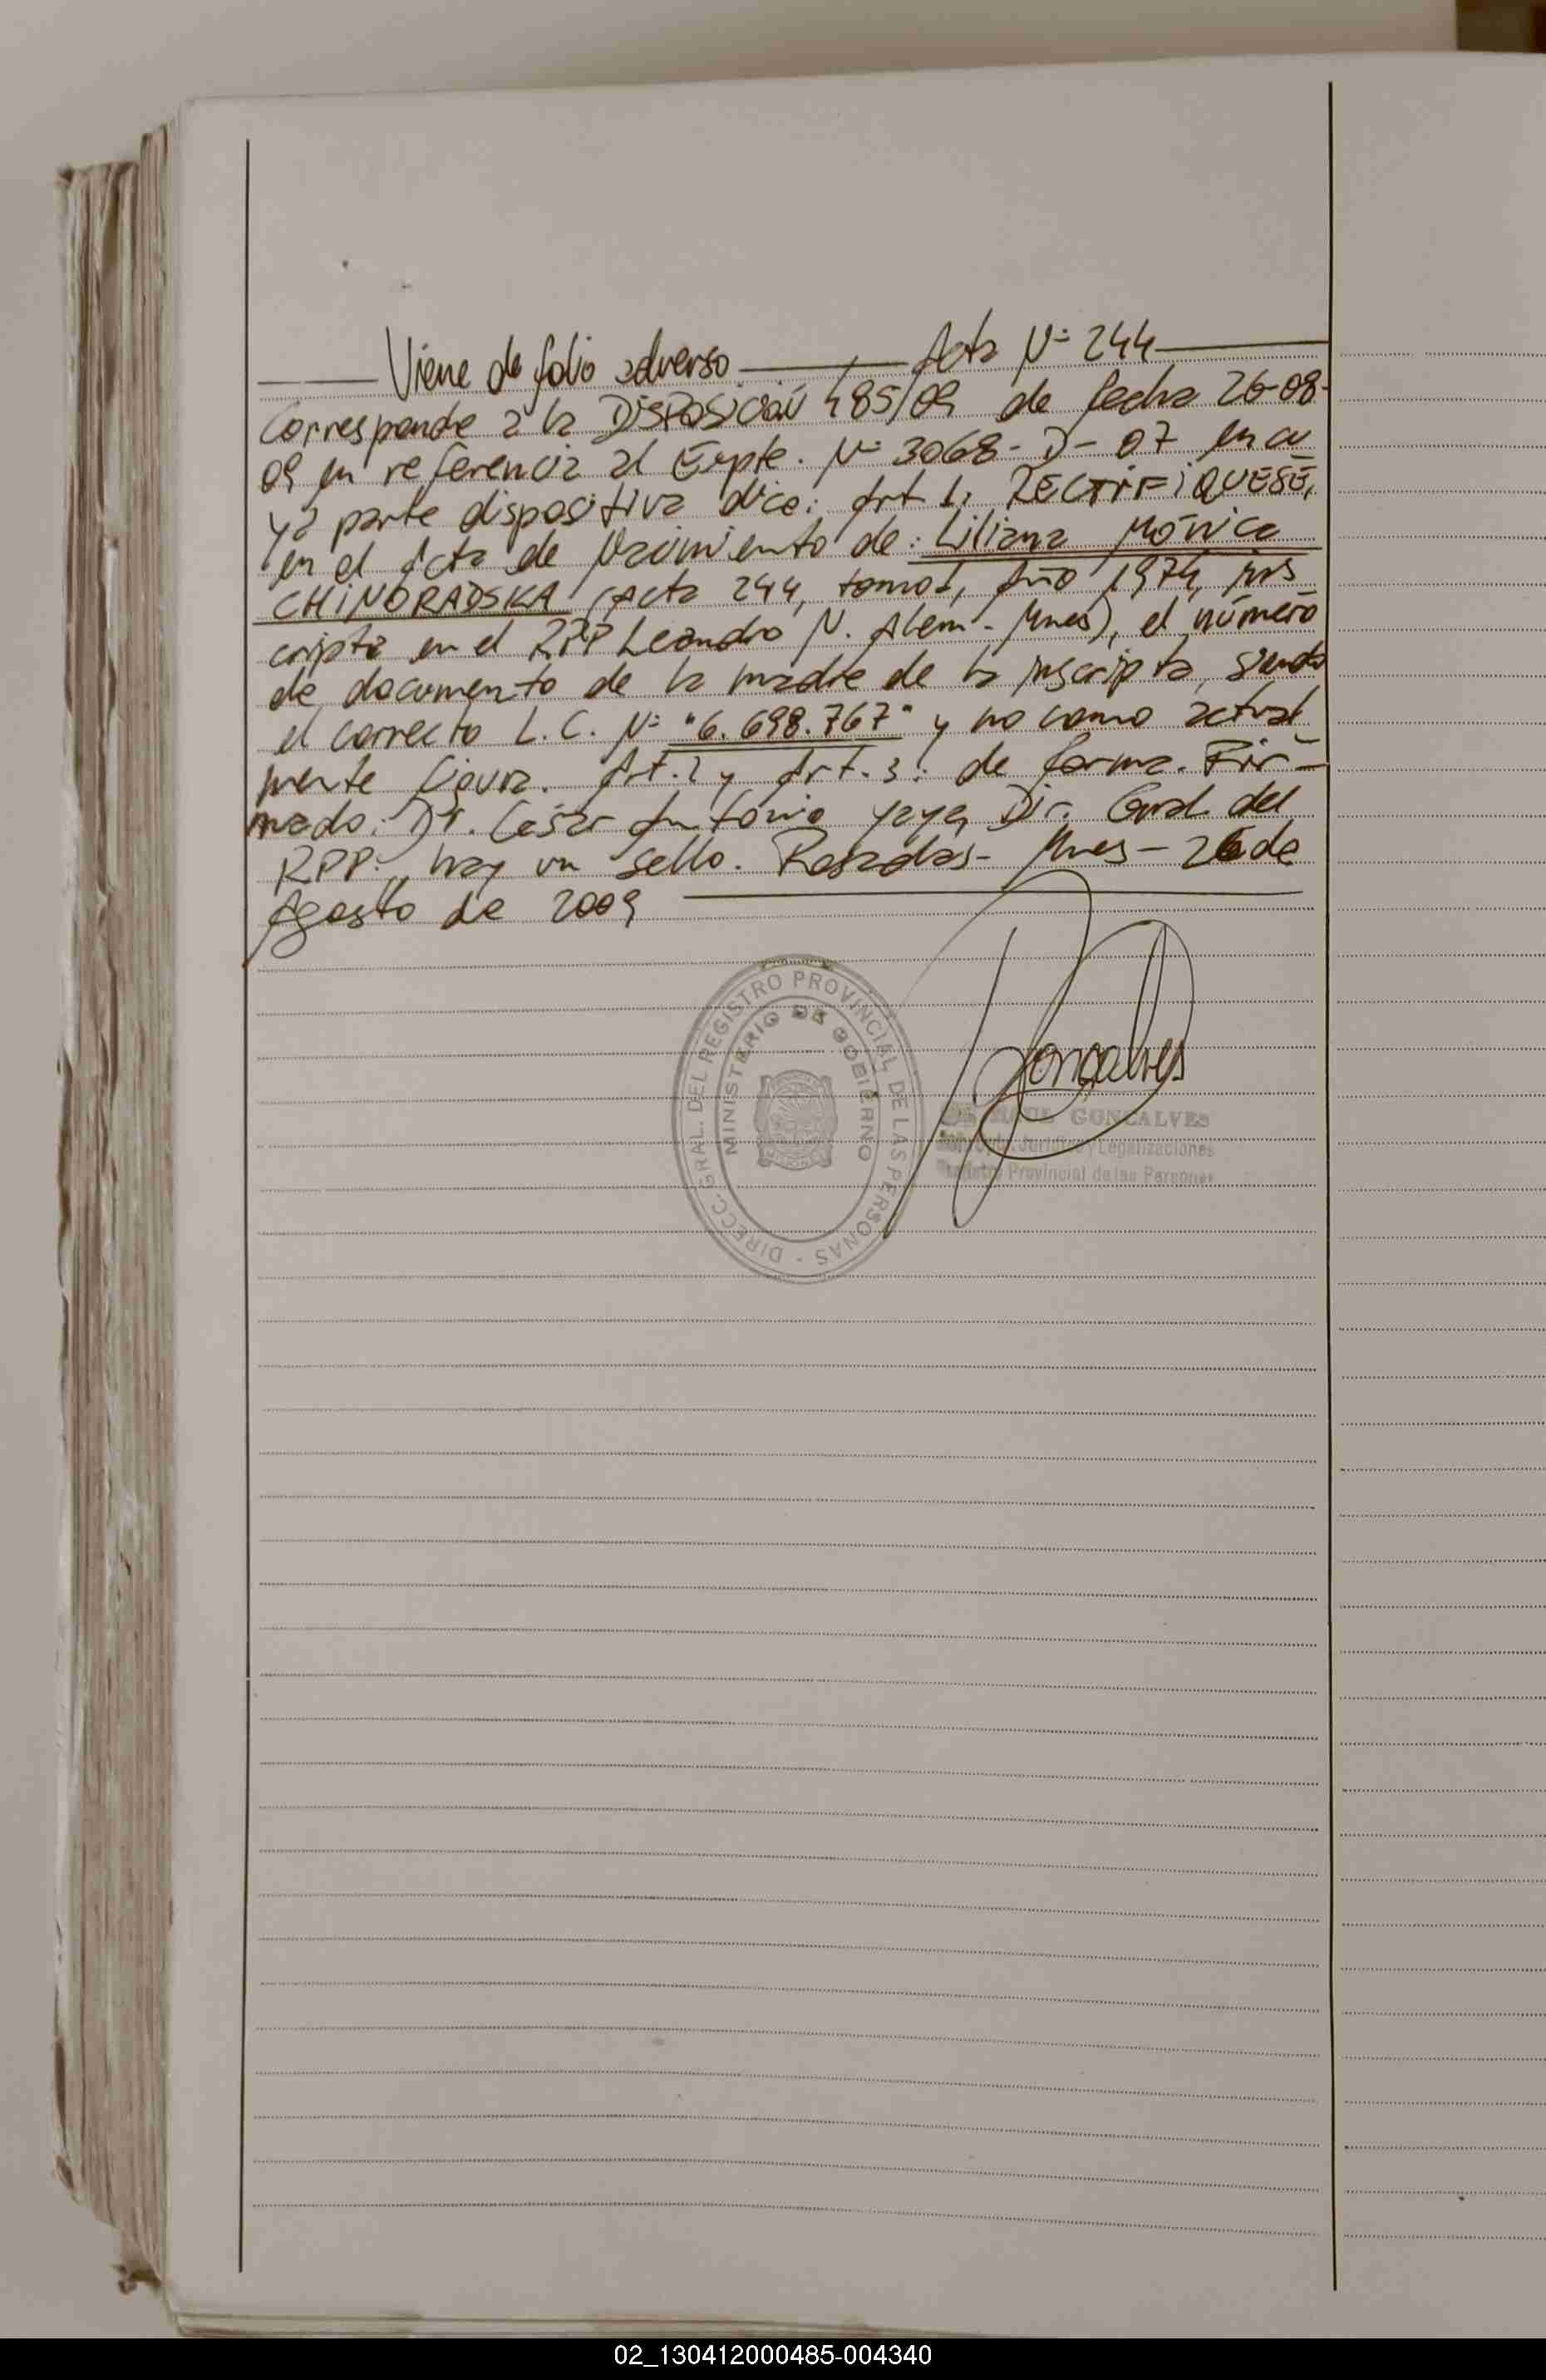 Viene de folio adverso Acta Nº 244
Corresponde a la DISPOSICIÓN 485/09 de fecha 26-08-
09 en referencia al Expte. Nº 3068-D-07 en cu
ya parte dispositiva dice: Art 1: RECTIFIQUESE,
en el Acta de Nacimiento de: Liliana Mónica
CHINORADSKA (Acta 244, tomo 1, Año 1974, ins
cripta en el RPP Leandro N. Alem - Mnes), el número
de documento de la madre de la inscripta, siendo
el correcto L.C. Nº "6.698.767" y no como actual
mente figura. Art. 2 y Art. 3: de forma. Fir-
mado: Dr. César Antonio Yaya, Dir. Gral. del
RPP., hay un sello. Posadas - Mnes - 26 de
Agosto de 2009
DIRECC. GRAL. DEL REGISTRO PROVINCIAL DE LAS PERSONAS -
MINISTERIO DE GOBIERNO
Gonçalves
RAUL GONCALVES
Jurídica y Legalizaciones
Provincial de las Personas
02_130412000485-004340